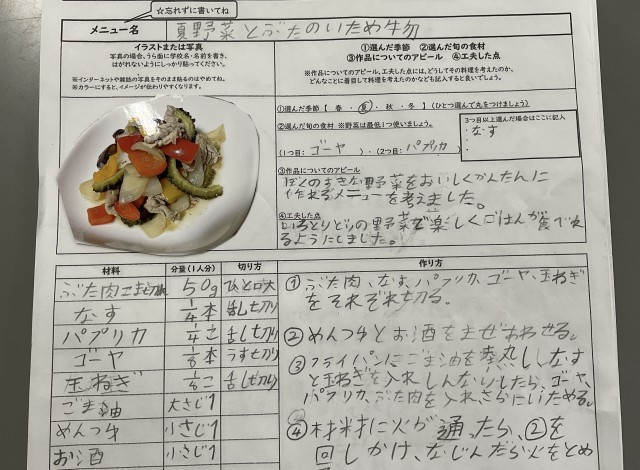 ☆忘れずに書いてね
メニュー名 夏野菜とぶたのいため物
イラストまたは写真
写真の場合、うら面に学校名・名前を書き、
はがれないようにしっかり貼ってください。
※インターネットや雑誌の写真をそのまま貼るのはやめてね。
※カラーにすると、イメージが伝わりやすくなります。
①選んだ季節 ②選んだ旬の食材
③作品についてのアピール ④工夫した点
※作品についてのアピール、工夫した点には、どうしてその料理を考えたのか、
どんなことに着目して料理を考えたのかなども記入すると良いでしょう。
①選んだ季節【 春・夏・秋・冬 】(ひとつ選んで丸をつけましょう)
②選んだ旬の食材 ※野菜は最低1つ使いましょう。
(1つ目: ゴーヤ )・(2つ目: パプリカ )
3つ目以上選んだ場合はここに記入
・なす
・
・
③作品についてのアピール
ぼくのすきな野菜をおいしくかんたんに
作れるメニューを考えました。
④工夫した点
いろとりどりの野菜で楽しくごはんが食べれ
るようにしました。
材料 分量(1人分) 切り方 作り方
ぶた肉こま切れ 50g ひと口大
なす 1/4本 乱切り
パプリカ 1/4こ 乱切り
ゴーヤ 1/8本 うす切り
玉ねぎ 1/8こ 乱切り
ごま油 大さじ1
めんつゆ 小さじ1
お酒 小さじ1
①ぶた肉、なす、パプリカ、ゴーヤ、玉ねぎ
をそれぞれ切る。
②めんつゆとお酒をまぜあわせる。
③フライパンにごま油を熱し、なす
と玉ねぎを入れしんなりしたら、ゴーヤ、
パプリカ、ぶた肉を入れ、さらにいためる。
④材料に火が通ったら、②を
回しかけ、なじんだら火をとめ